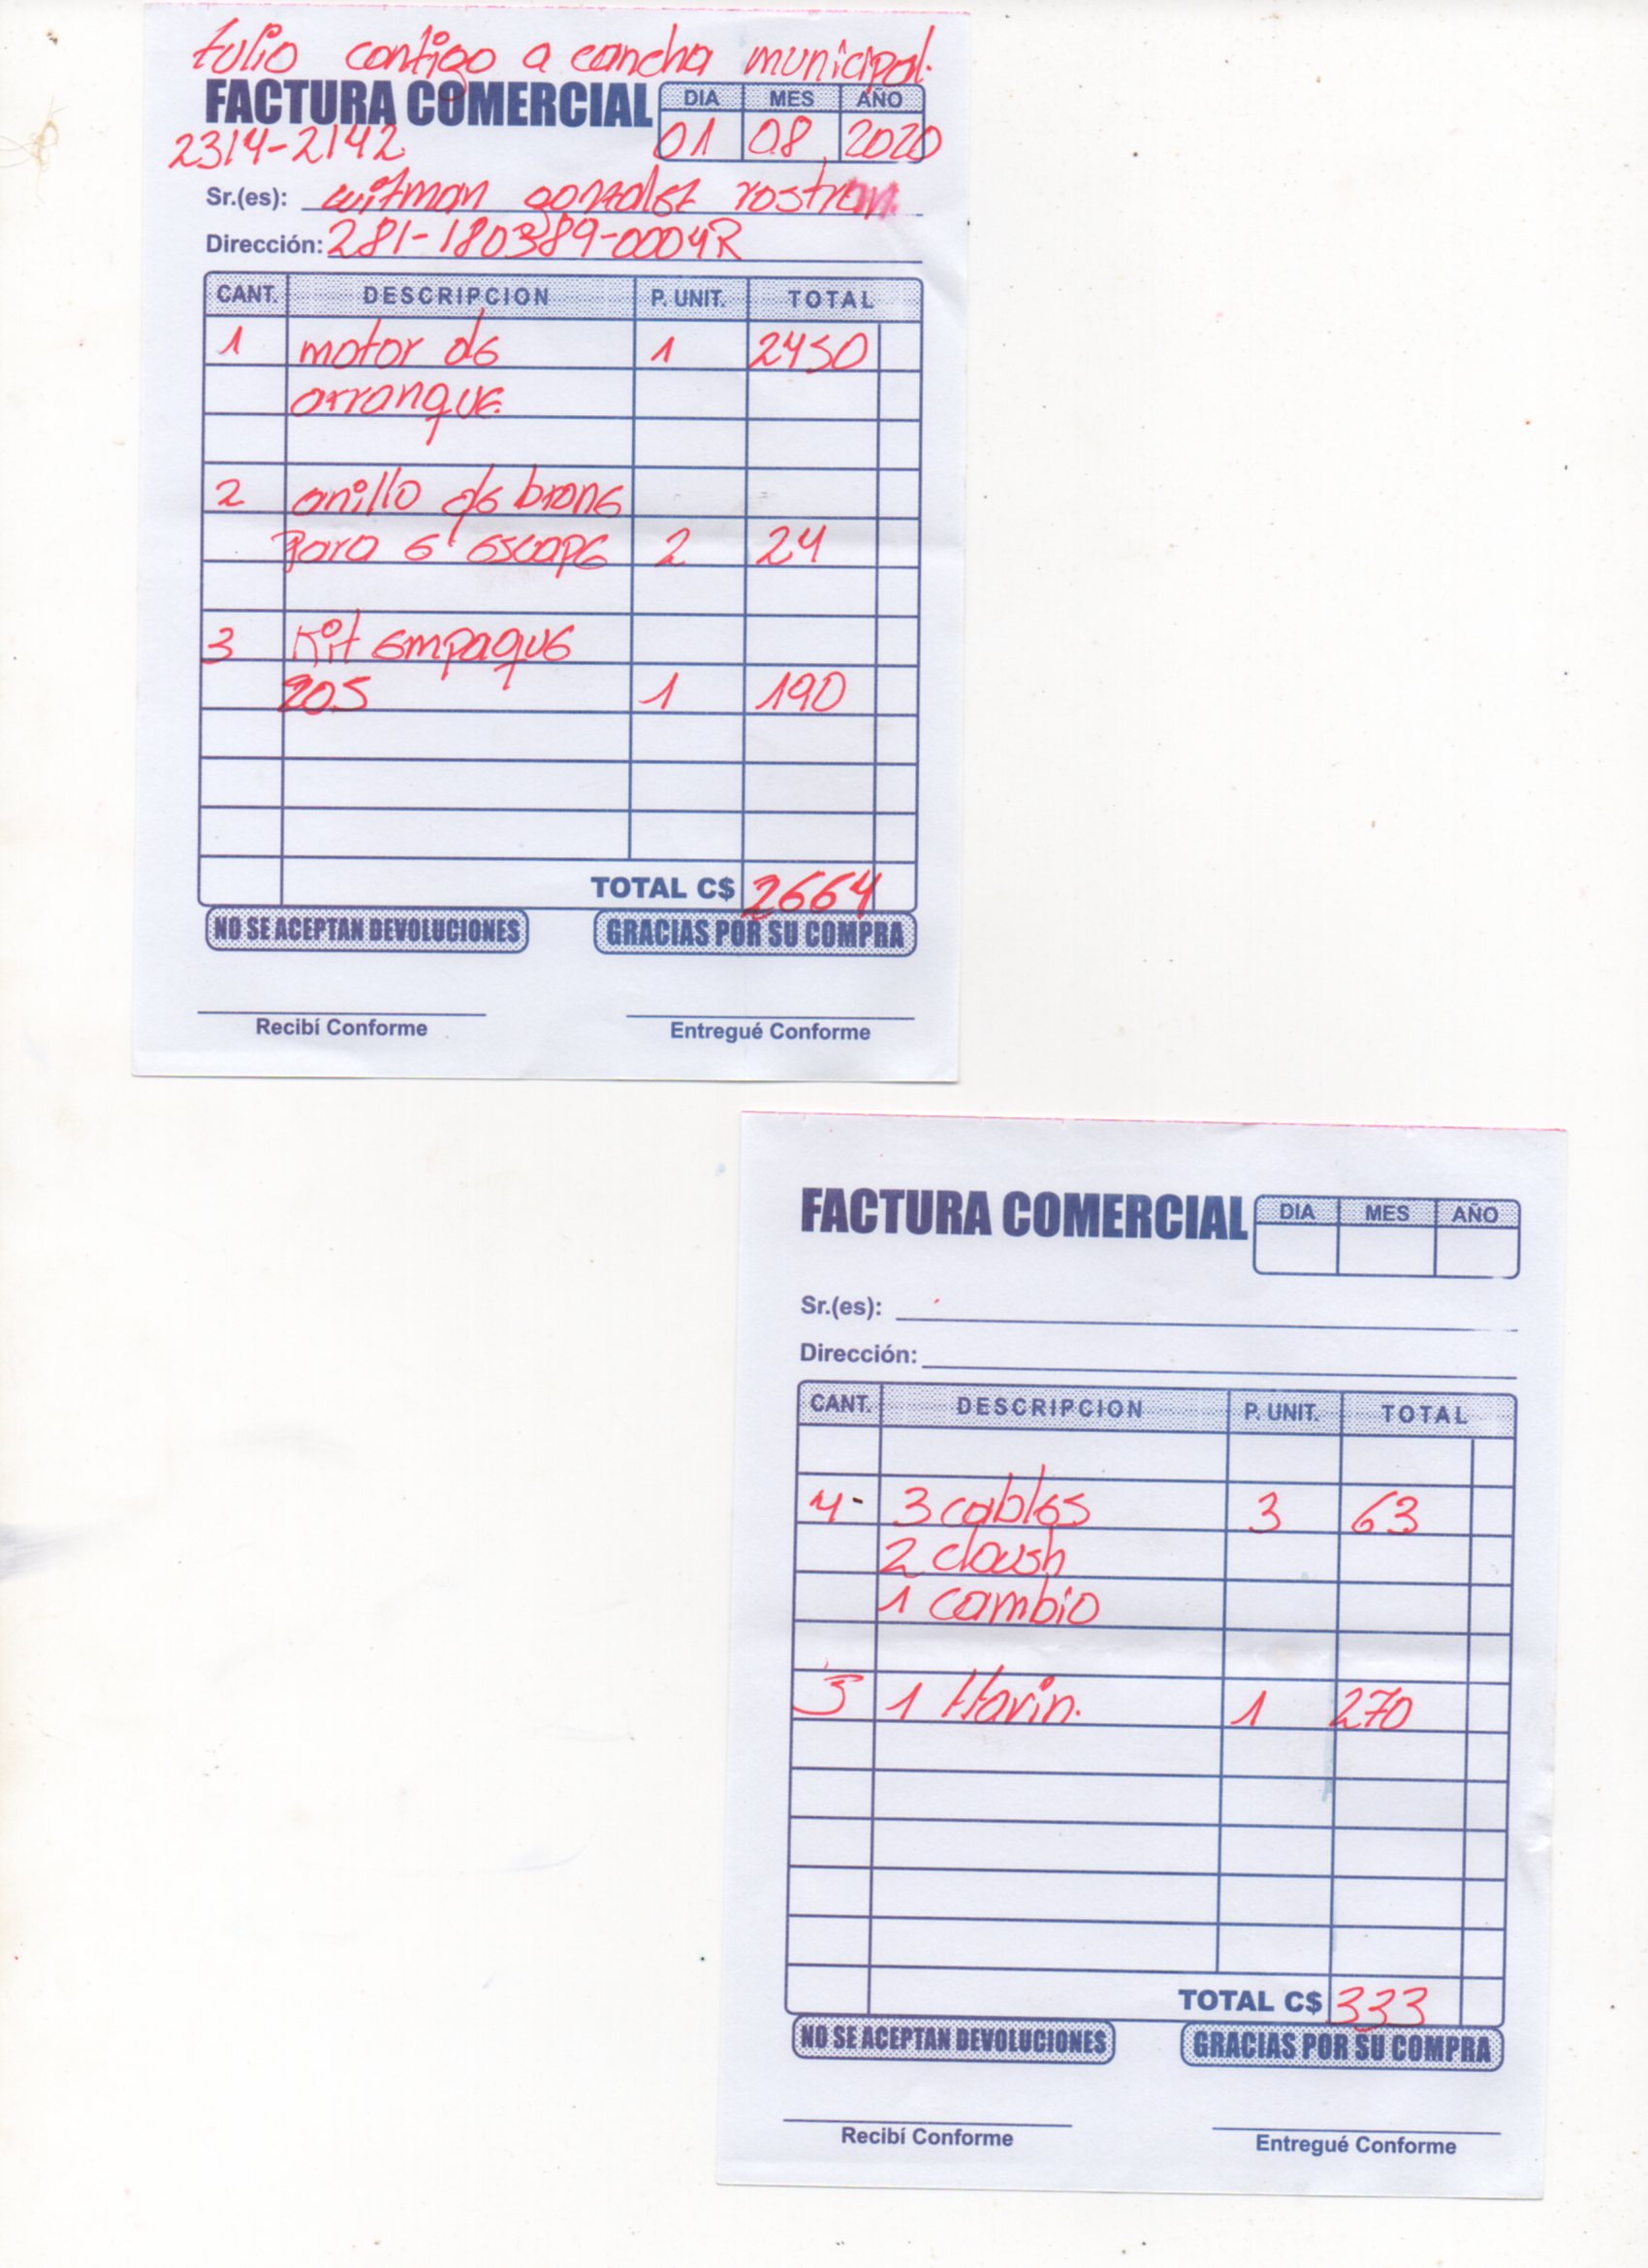 tulio contigo a cancha municipal.
FACTURA COMERCIAL DIA MES AÑO
2314-2142 01 08 2020
Sr.(es): witman gonzalez rostran
Dirección: 281-180389-0004R
CANT. DESCRIPCION P. UNIT. TOTAL
1 motor de 1 2450
arranque.
2 anillo de bronc
para e' escape 2 24
3 Kit empaque
205 1 190
TOTAL C$ 2664
NO SE ACEPTAN DEVOLUCIONES GRACIAS POR SU COMPRA
Recibí Conforme Entregué Conforme
FACTURA COMERCIAL DIA MES AÑO
Sr.(es):
Dirección:
CANT. DESCRIPCION P. UNIT. TOTAL
4- 3 cables 3 63
2 cloush
1 cambio
5 1 Llavin. 1 270
TOTAL C$ 333
NO SE ACEPTAN DEVOLUCIONES GRACIAS POR SU COMPRA
Recibí Conforme Entregué Conforme